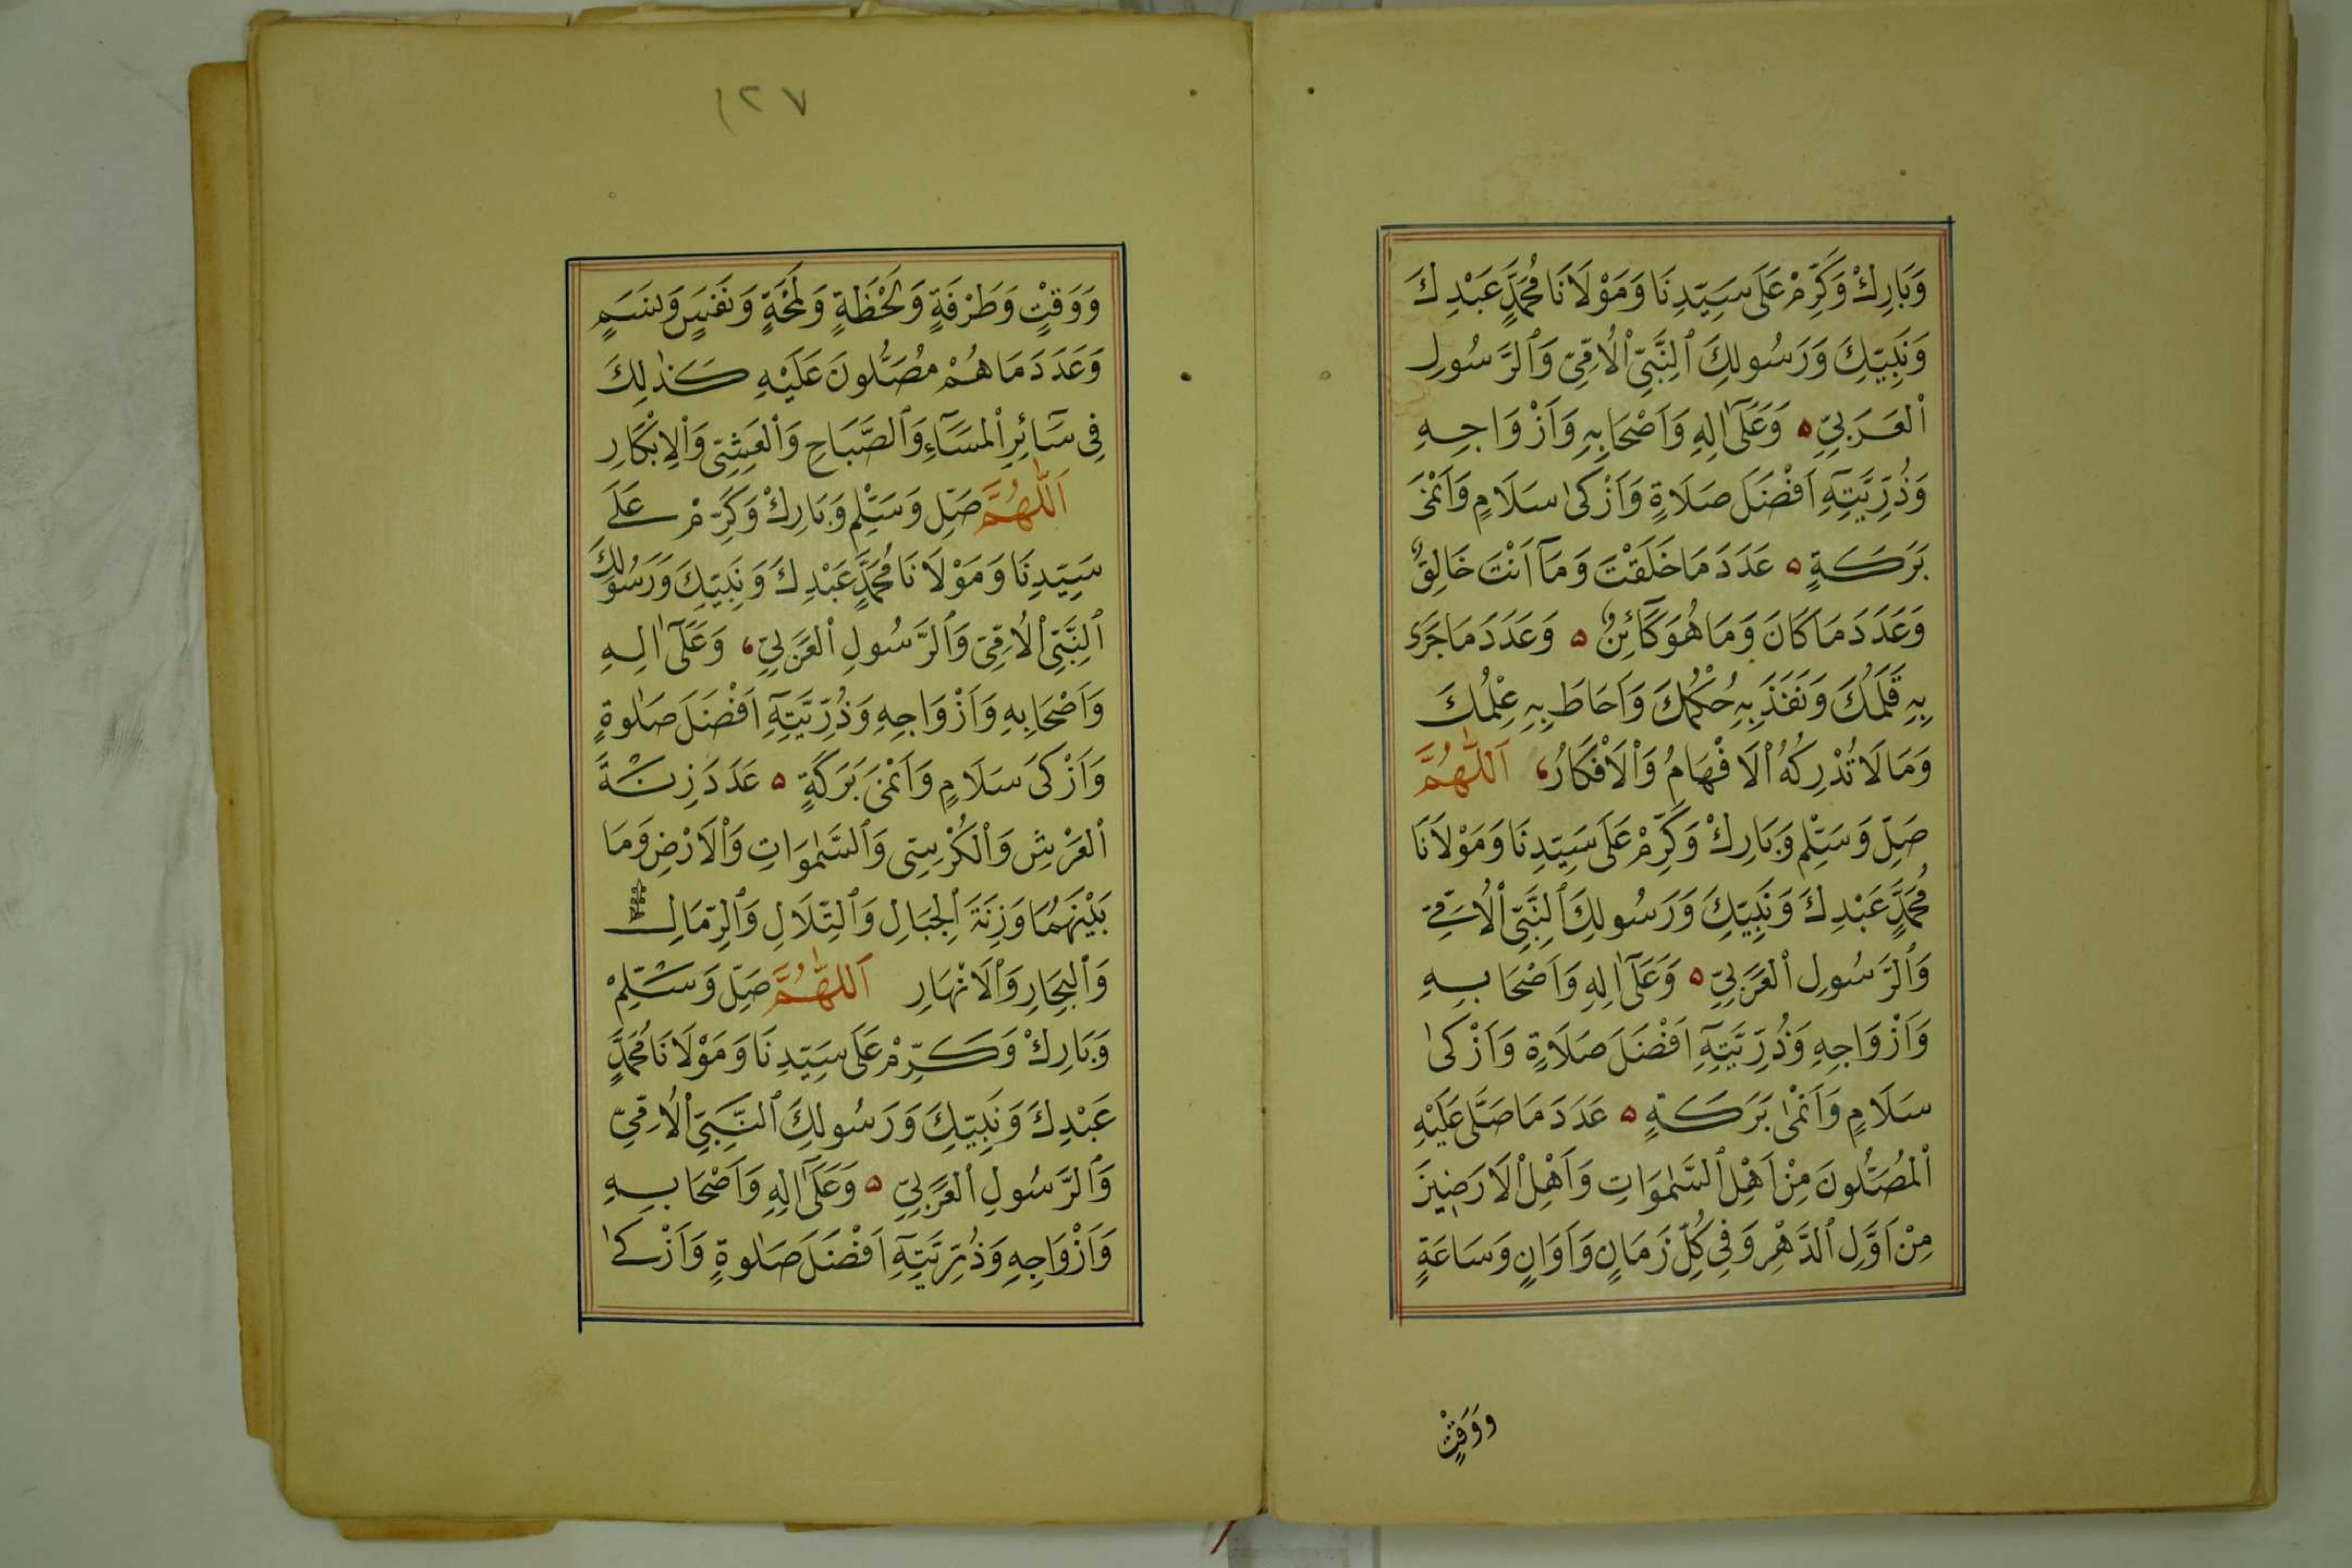 وَبَارِكْ وَكَرِّمْ عَلَى سَيِّدِنَا وَمَوْلَانَا مُحَمَّدٍ عَبْدِكَ
وَنَبِيِّكَ وَرَسُولِكَ ٱلنَّبِيِّ ٱلْاُمِّيِّ وَٱلرَّسُولِ
ٱلْعَرَبِيِّ ۵ وَعَلَىٰٓ اٰلِهِ وَاَصْحَابِهِ وَاَزْوَاجِهِ
وَذُرِّيَّتِهِٓ اَفْضَلَ صَلَاةٍ وَاَزْكىٰ سَلَامٍ وَاَنْمىَٰ
بَرَكَةٍ ۵ عَدَدَ مَا خَلَقْتَ وَمَٓا اَنْتَ خَالِقٌ
وَعَدَدَ مَا كَانَ وَمَا هُوَ كَٓائِنٌ ۵ وَعَدَدَ مَا جَرَى
بِهِ قَلَمُكَ وَنَفَذَ بِهِ حُكْمُكَ وَاَحَاطَ بِهِ عِلْمُكَ
وَمَا لَا تُدْرِكُهُ ٱلْاَفْهَامُ وَٱلْاَفْكَارُ، اَللّٰهُمَّ
صَلِّ وَسَلِّمْ وَبَارِكْ وَكَرِّمْ عَلَى سَيِّدِنَا وَمَوْلَانَا
مُحَمَّدٍ عَبْدِكَ وَنَبِيِّكَ وَرَسُولِكَ ٱلنَّبِيِّ ٱلْاُمِّيِّ
وَٱلرَّسُولِ ٱلْعَرَبِيِّ ۵ وَعَلَىٰٓ اٰلِهِ وَاَصْحَابِهِ
وَاَزْوَاجِهِ وَذُرِّيَّتِهِٓ اَفْضَلَ صَلَاةٍ وَاَزْكىٰ
سَلَامٍ وَاَنْمىٰ بَرَكَةٍ ۵ عَدَدَ مَا صَلَّى عَلَيْهِ
ٱلْمُصَلُّونَ مِنْ اَهْلِ ٱلسَّمٰوَاتِ وَاَهْلِ ٱلْاَرَضِينَ
مِنْ اَوَّلِ ٱلدَّهْرِ وَفِي كُلِّ زَمَانٍ وَاَوَانٍ وَسَاعَةٍ
وَوَقْتٍ
١٢٧
وَوَقْتٍ وَطَرْفَةٍ وَلَحْظَةٍ وَلَمْحَةٍ وَنَفَسٍ وَنَسَمٍ
وَعَدَدَ مَا هُمْ مُصَلُّونَ عَلَيْهِ كَذٰلِكَ
فِي سَٓائِرِ ٱلْمَسَٓاءِ وَٱلصَّبَاحِ وَٱلْعَشِيِّ وَٱلْاِبْكَارِ
اَللّٰهُمَّ صَلِّ وَسَلِّمْ وَبَارِكْ وَكَرِّمْ عَلَى
سَيِّدِنَا وَمَوْلَانَا مُحَمَّدٍ عَبْدِكَ وَنَبِيِّكَ وَرَسُولِكَ
ٱلنَّبِيِّ ٱلْاُمِّيِّ وَٱلرَّسُولِ ٱلْعَرَبِيِّ، وَعَلَىٰٓ اٰلِهِ
وَاَصْحَابِهِ وَاَزْوَاجِهِ وَذُرِّيَّتِهِٓ اَفْضَلَ صَلٰوةٍ
وَاَزْكىَ سَلَامٍ وَاَنْمىَ بَرَكَةٍ ۵ عَدَدَ زِنَةَ
ٱلْعَرْشِ وَٱلْكُرْسِيِّ وَٱلسَّمٰوَاتِ وَٱلْاَرْضِ وَمَا
بَيْنَهُمَا وَزِنَةَ ٱلْجِبَالِ وَٱلتِّلَالِ وَٱلرِّمَالِ
وَٱلْبِحَارِ وَٱلْاَنْهَارِ اَللّٰهُمَّ صَلِّ وَسَلِّمْ
وَبَارِكْ وَكَرِّمْ عَلَى سَيِّدِنَا وَمَوْلَانَا مُحَمَّدٍ
عَبْدِكَ وَنَبِيِّكَ وَرَسُولِكَ ٱلنَّبِيِّ ٱلْاُمِّيِّ
وَٱلرَّسُولِ ٱلْعَرَبِيِّ ۵ وَعَلَىٰٓ اٰلِهِ وَاَصْحَابِهِ
وَاَزْوَاجِهِ وَذُرِّيَّتِهِٓ اَفْضَلَ صَلٰوةٍ وَاَزْكىٰ